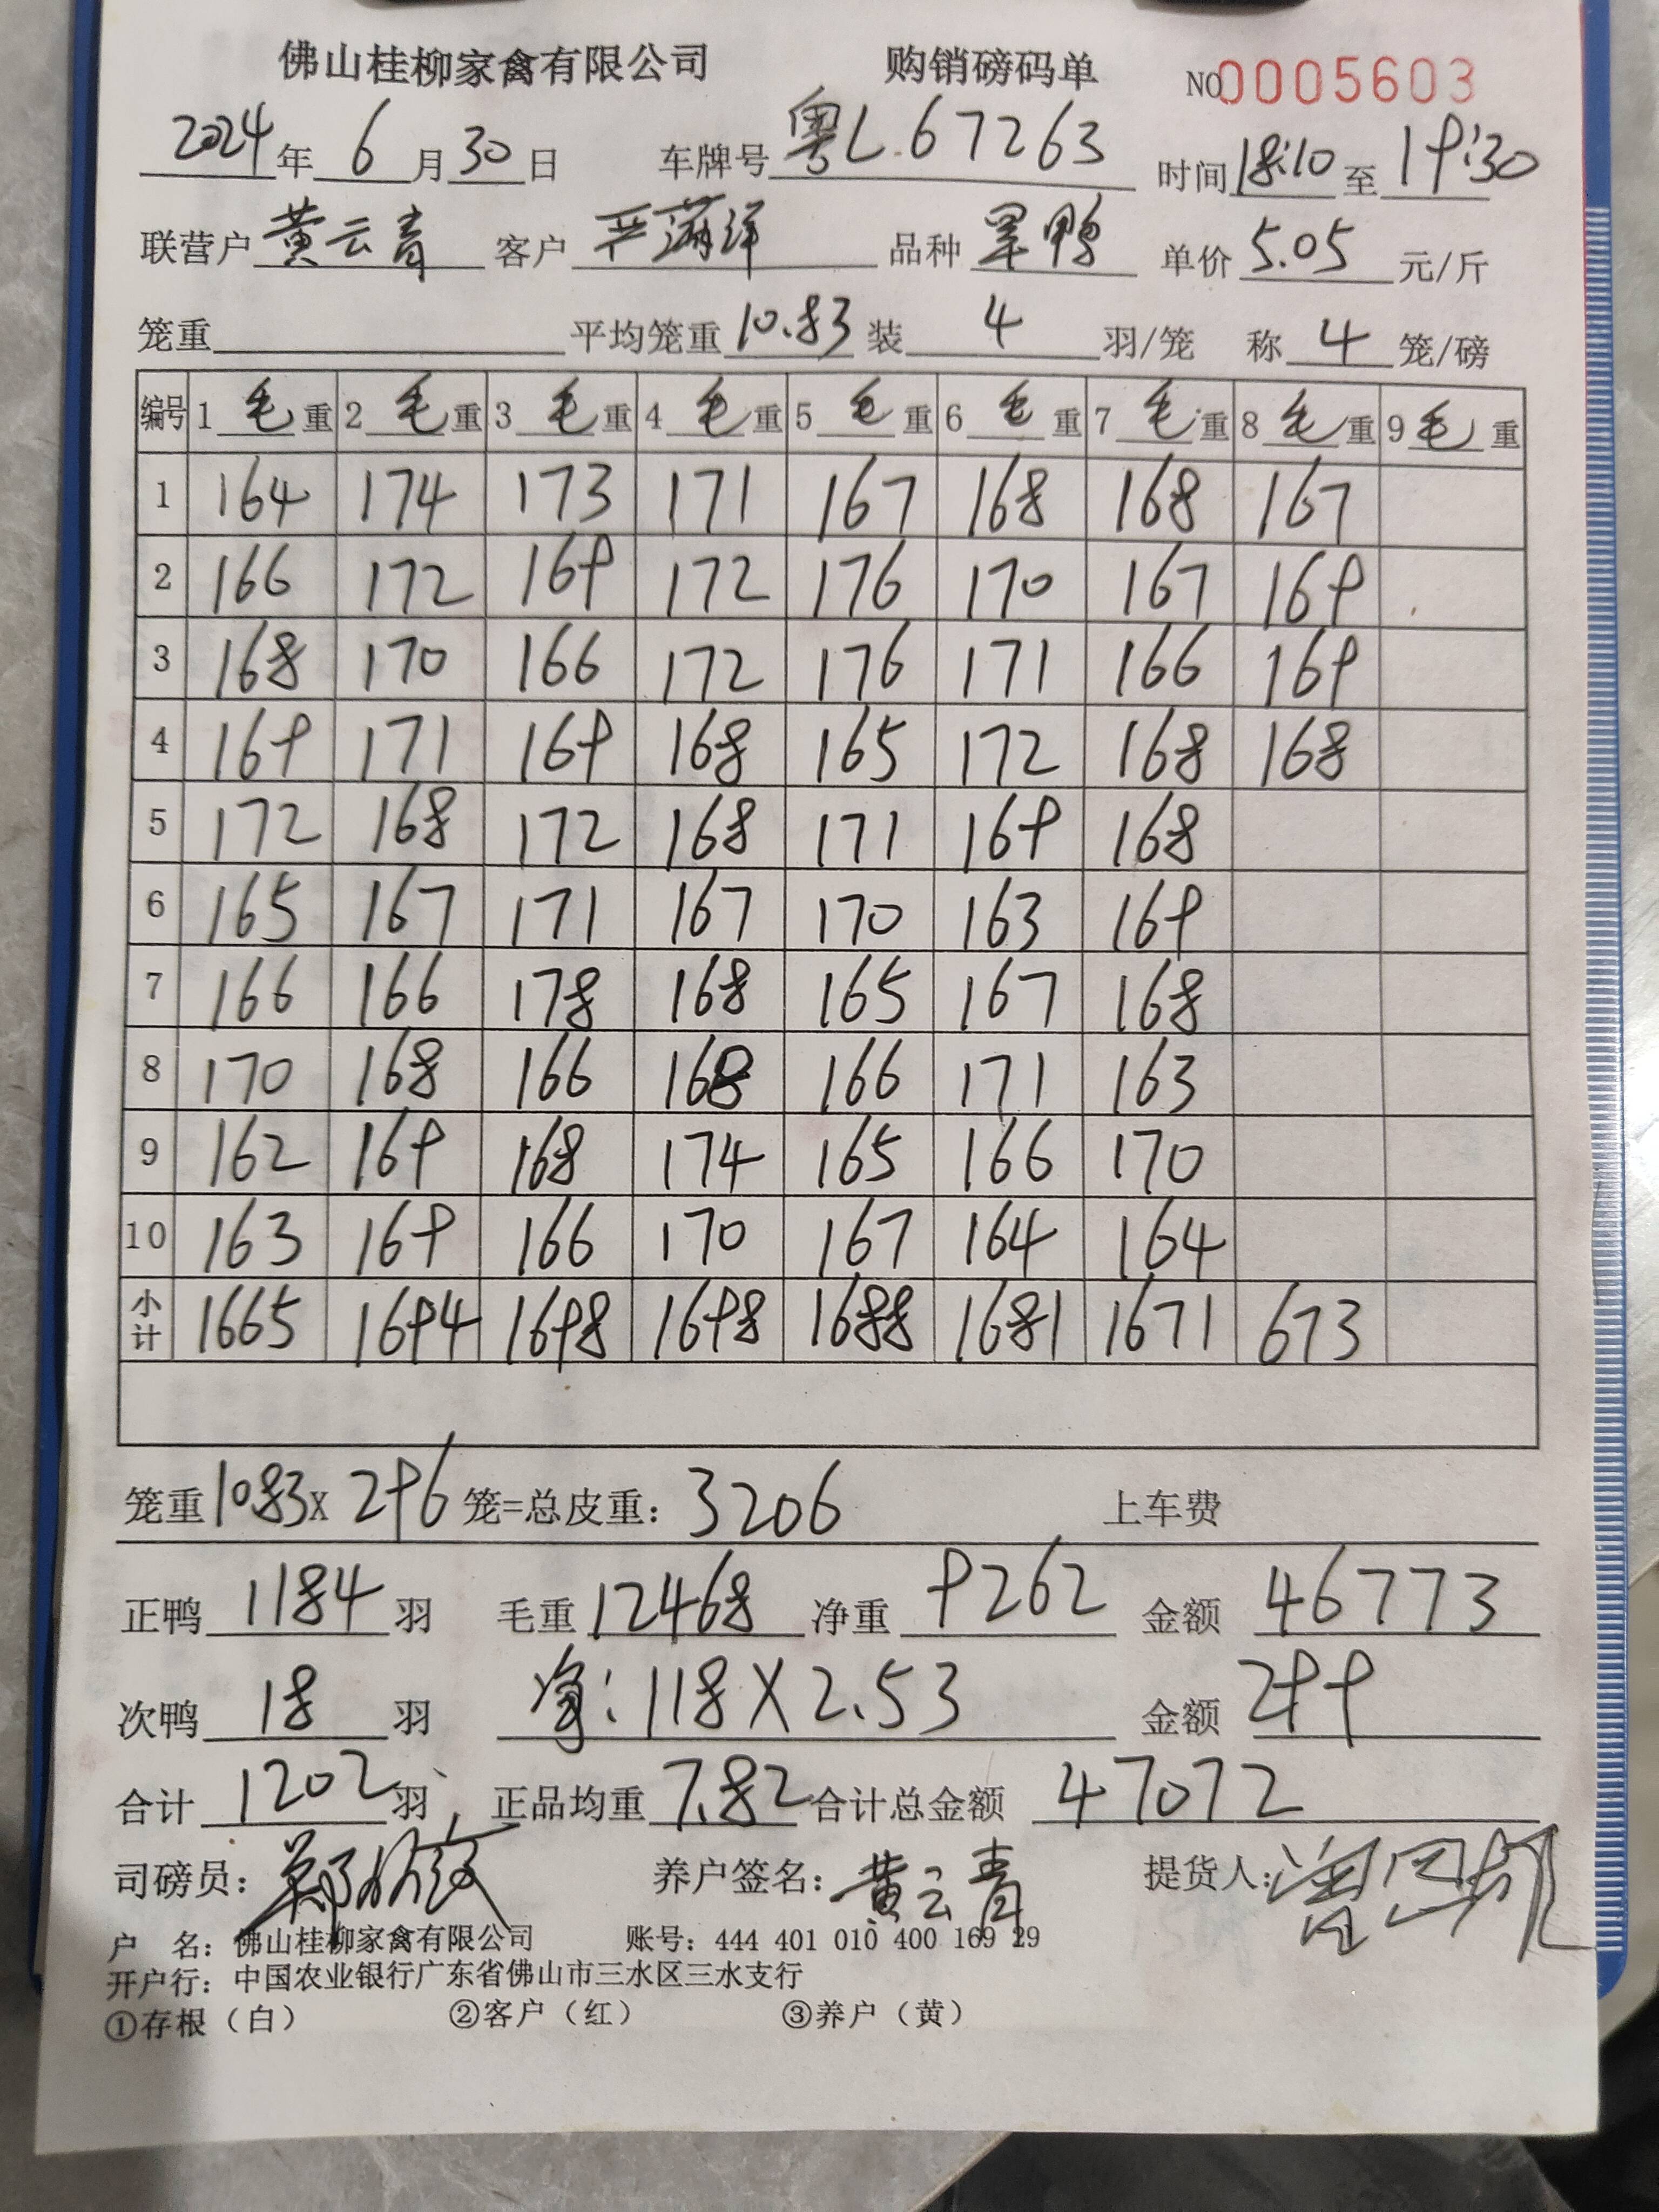 佛山桂柳家禽有限公司 购销磅码单 NO 0005603
2024年6月30日 车牌号 粤L.67263 时间 18:10 至 19:30
联营户 黄云青 客户 严满洋 品种 旱鸭 单价 5.05 元/斤
笼重 平均笼重 10.83 装 4 羽/笼 称 4 笼/磅
编号 1 毛重 2 毛重 3 毛重 4 毛重 5 毛重 6 毛重 7 毛重 8 毛重 9 毛重
1 164 174 173 171 167 168 168 167
2 166 172 169 172 176 170 167 169
3 168 170 166 172 176 171 166 169
4 169 171 169 168 165 172 168 168
5 172 168 172 168 171 169 168
6 165 167 171 167 170 163 169
7 166 166 178 168 165 167 168
8 170 168 166 168 166 171 163
9 162 169 168 174 165 166 170
10 163 169 166 170 167 164 164
小计 1665 1694 1698 1698 1688 1681 1671 673
笼重 1083 X 296 笼=总皮重: 3206 上车费
正鸭 1184 羽 毛重 12468 净重 9262 金额 46773
次鸭 18 羽 净: 118 X 2.53 金额 299
合计 1202 羽 正品均重 7.82 合计总金额 47072
司磅员: 养户签名: 黄云青 提货人:
户 名: 佛山桂柳家禽有限公司 账号: 444 401 010 400 169 29
开户行: 中国农业银行广东省佛山市三水区三水支行
①存根（白） ②客户（红） ③养户（黄）